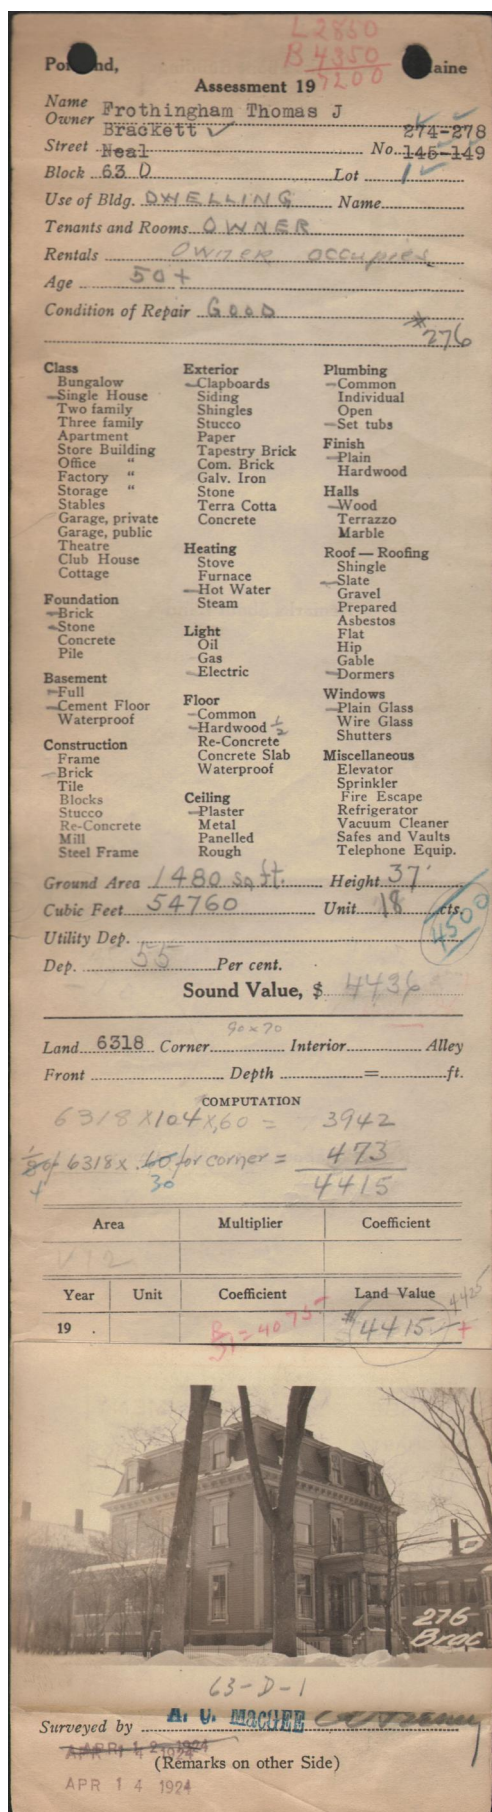 L 2850
B 4350
7200
Portland, Maine
Assessment 19
Name
Owner Frothingham Thomas J
Brackett 274-278
Street Neal No. 145-149
Block 63 D Lot 1
Use of Bldg. DWELLING Name
Tenants and Rooms OWNER
Rentals OWNER occupies
Age 50+
Condition of Repair GOOD
#276
Class
Bungalow
Single House
Two family
Three family
Apartment
Store Building
Office "
Factory "
Storage "
Stables
Garage, private
Garage, public
Theatre
Club House
Cottage
Foundation
Brick
Stone
Concrete
Pile
Basement
Full
Cement Floor
Waterproof
Construction
Frame
Brick
Tile
Blocks
Stucco
Re-Concrete
Mill
Steel Frame
Exterior
Clapboards
Siding
Shingles
Stucco
Paper
Tapestry Brick
Com. Brick
Galv. Iron
Stone
Terra Cotta
Concrete
Heating
Stove
Furnace
Hot Water
Steam
Light
Oil
Gas
Electric
Floor
Common
Hardwood 1/2
Re-Concrete
Concrete Slab
Waterproof
Ceiling
Plaster
Metal
Panelled
Rough
Plumbing
Common
Individual
Open
Set tubs
Finish
Plain
Hardwood
Halls
Wood
Terrazzo
Marble
Roof — Roofing
Shingle
Slate
Gravel
Prepared
Asbestos
Flat
Hip
Gable
Dormers
Windows
Plain Glass
Wire Glass
Shutters
Miscellaneous
Elevator
Sprinkler
Fire Escape
Refrigerator
Vacuum Cleaner
Safes and Vaults
Telephone Equip.
Ground Area 1480 sq ft. Height 37'
Cubic Feet 54760 Unit 18 cts.
4500
Utility Dep.
Dep. 55 Per cent.
Sound Value, $ 4436
90x70
Land 6318 Corner Interior Alley
Front Depth = ft.
COMPUTATION
6318 x 104 x .60 = 3942
1/8 of 6318 x .60 for corner = 473
4 30
4415
Area Multiplier Coefficient
V 12
Year Unit Coefficient Land Value
4425
19 . #4415
276
Broc
63-D-1
Surveyed by A. C. MACGEE
APR 12 1924
(Remarks on other Side)
APR 14 1924